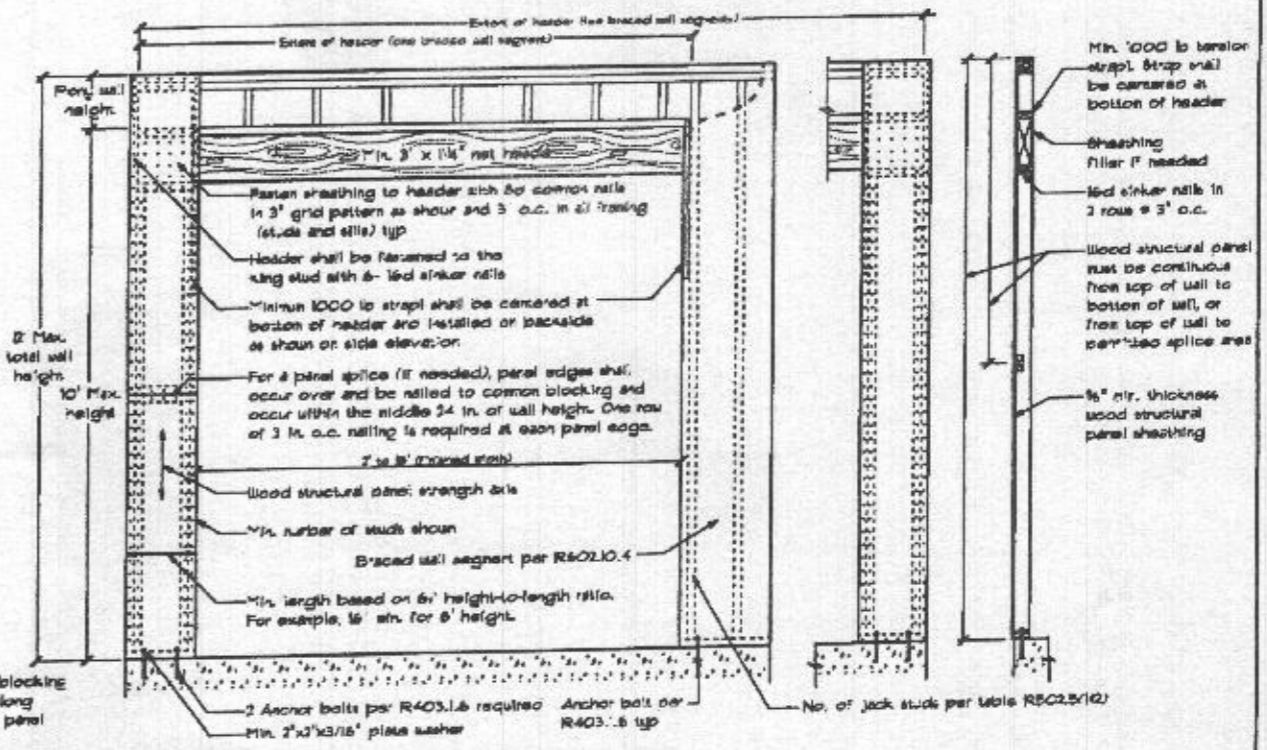 Extent of header (two braced wall segments)
Extent of header (one braced wall segment)
Pony wall
height
Min. 3" x 11¼" net header
Fasten sheathing to header with 8d common nails
in 3" grid pattern as shown and 3" o.c. in all framing
(studs and sills) typ
Header shall be fastened to the
king stud with 6- 16d sinker nails
Minimum 1000 lb strap shall be centered at
bottom of header and installed on backside
as shown on side elevation
12' Max.
total wall
height
10' Max.
height
For a panel splice (if needed), panel edges shall
occur over and be nailed to common blocking and
occur within the middle 24 in. of wall height. One row
of 3 in. o.c. nailing is required at each panel edge.
Wood structural panel strength axis
Min. number of studs shown
Braced wall segment per R602.10.4
Min. length based on 6:1 height-to-length ratio.
For example, 16" min. for 8' height.
blocking
long
panel
2 Anchor bolts per R403.1.6 required
Min. 2"x2"x3/16" plate washer
Anchor bolt per
R403.1.6 typ
No. of jack studs per table R502.5(1&2)
Min. 1000 lb tension
strap. Strap shall
be centered at
bottom of header
Sheathing
filler if needed
16d sinker nails in
2 rows @ 3" o.c.
Wood structural panel
must be continuous
from top of wall to
bottom of wall, or
from top of wall to
permitted splice area
min. thickness
wood structural
panel sheathing